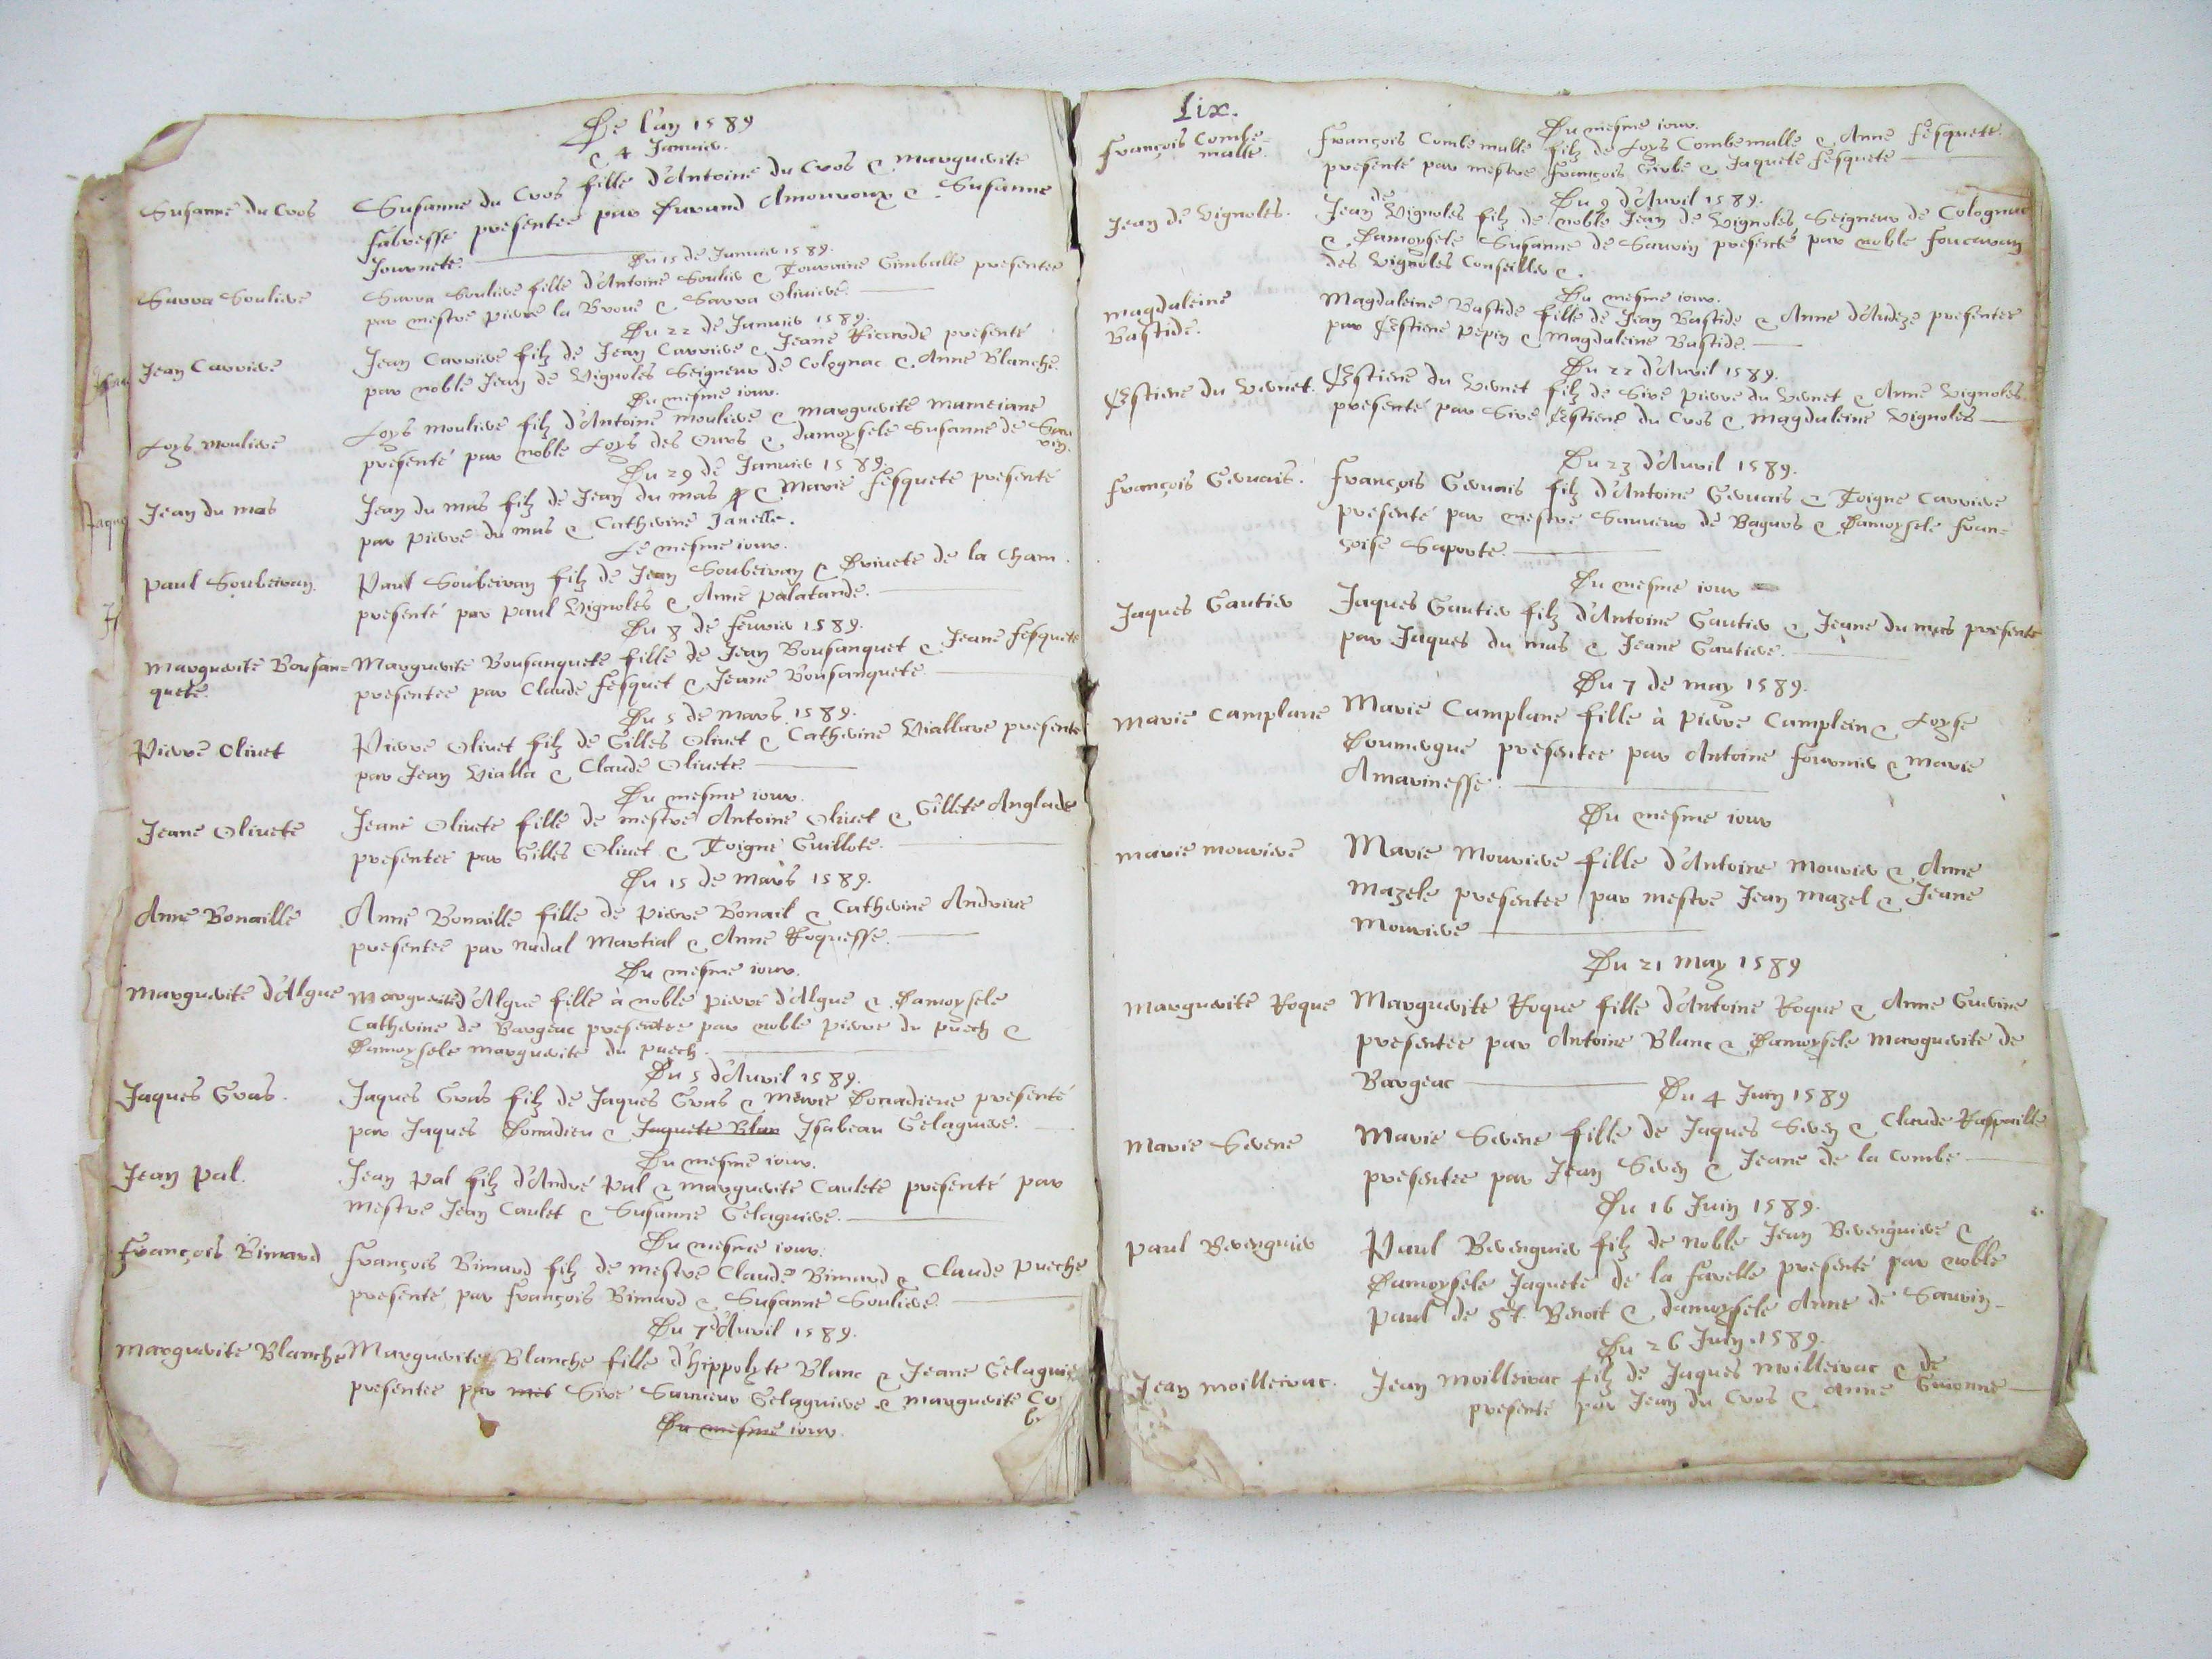 De l'an 1589
& 4 Januier.
Susanne du Cros
Susanne du Cros fille d'Antoine du Cros & Marguerite
fabresse presentee par Durand Amouroux & Susanne
Journete.
Du 15 de Januier 1589.
Sarra Souliere
Sarra Souliere fille d'Antoine Soulier & Tourraine Gimballe presentee
par mestre pierre la Broue & Sarra Oliuiere.
Du 22 de Januier 1589.
Jean Carriere
Jean Carriere filz de Jean Carriere & Jeane Ricarde presenté
par noble Jean de Vignoles Seigneur de Colognac & Anne Blanche.
Du mesme iour.
Loys mouliere
Loys mouliere filz d'Antoine mouliere & marguerite mameiane
presenté par noble Loys des Ours & damoysele Susanne de Sau
rin.
Du 29 de Januier 1589.
Jean du mas
Jean du mas filz de Jean du mas & Marie fesquete presenté
par pierre du mas & Catherine Janelle.
Le mesme iour.
paul Soubeiran.
Paul Soubeiran filz de Jean Soubeiran & Briuete de la Cham.
presenté par paul Vignoles & Anne palatande.
Du 8 de feurier 1589.
Marguerite Bousan=
quete.
Marguerite Bousanquete fille de Jean Bousanquet & Jeane fesquete
presentee par Claude fesquet & Jeane Bousanquete.
Du 5 de mars 1589.
Pierre Oliuet
Pierre Oliuet filz de Gilles Oliuet & Catherine Viallare presenté
par Jean Vialla & Claude Oliuete.
Du mesme iour.
Jeane Oliuete
Jeane Oliuete fille de mestre Antoine Oliuet & Gillete Anglade
presentee par Gilles Oliuet & Toigne Guillote.
Du 15 de mars 1589.
Anne Bonaille
Anne Bonaille fille de pierre Bonail & Catherine Andriue
presentee par nadal Martial & Anne Roquesse.
Du mesme iour.
Marguerite d'Algue
Marguerite d'Algue fille à noble pierre d'Algue & Damoysele
Catherine de Bargeac presentee par noble pierre du puech &
Damoysele marguerite du puech.
Du 5 d'Auril 1589.
Jaques Gras.
Jaques Gras filz de Jaques Gras & Marie Donadieue presenté
par Jaques Donadieu & Jaquete Blan Isabeau Gelaguiere.
Du mesme iour.
Jean pal.
Jean pal filz d'André pal & marguerite Caulete presenté par
mestre Jean Caulet & Susanne Gelaguiere.
Du mesme iour.
François Bimard
François Bimard filz de mestre Claude Bimard & Claude pueche
presenté par François Bimard & Susanne Souliere.
Du 7 d'Auril 1589.
Marguerite Blanche
Marguerite Blanche fille d'hippolyte Blanc & Jeane Gelaguie
presentee par mes Sire Sauueur Gelaguiere & marguerite Co
Du mesme iour.
Lix.
Du mesme iour.
François Combe=
malle.
François Combemalle filz de Loys Combemalle & Anne fesquete.
presenté par mestre François Girbe & Jaquete fesquete
Du 9 d'Auril 1589.
Jean de Vignoles.
Jean de Vignoles filz de noble Jean de Vignoles Seigneur de Colognac
& Damoysele Susanne de Saurin presenté par noble foucaran
des Vignoles Conseiller &.
Du mesme iour.
magdaleine
Bastide.
Magdaleine Bastide fille de Jean Bastide & Anne d'Audeze presentee
par Estiene pepin & Magdaleine Bastide.
Du 22 d'Auril 1589.
Estiene du Vernet.
Estiene du Vernet filz de Sire pierre du Vernet & Anne Vignoles.
presenté par Sire Estiene du Cros & magdaleine Vignoles
Du 23 d'Auril 1589.
François Geruais.
François Geruais filz d'Antoine Geruais & Toigne Carriere
presenté par mestre Sauueur de Bagars & Damoysele fran=
çoise Saporte.
Du mesme iour
Jaques Gautier
Jaques Gautier filz d'Antoine Gautier & Jeane du mas presenté
par Jaques du mas & Jeane Gautiere.
Du 7 de may 1589.
Marie Camplane
Marie Camplane fille à pierre Camplein & Loyse
Doumergue presentee par Antoine fournier & marie
Amarinesse.
Du mesme iour
marie mouriere
Marie Mouriere fille d'Antoine Mourier & Anne
Mazele presentee par mestre Jean mazel & Jeane
Mouriere
Du 21 may 1589
Marguerite Roque
Marguerite Roque fille d'Antoine Roque & Anne Guerine
presentee par Antoine Blanc & Damoysele marguerite de
Bargeac
Du 4 Juin 1589
Marie Seuene
Marie Seuene fille de Jaques Seuen & Claude Raspaille
presentee par Jean Seuen & Jeane de la Combe
Du 16 Juin 1589.
paul Berenguier
Paul Berenguier filz de noble Jean Berenguiere &
Damoysele Jaquete de la farelle presenté par noble
paul de St. Benoit & damoysele Anne de Saurin
Du 26 Juin 1589.
Jean moilleirac.
Jean moilleirac filz de Jaques moilleirac & de
presenté par Jean du Cros & Anne Guionne